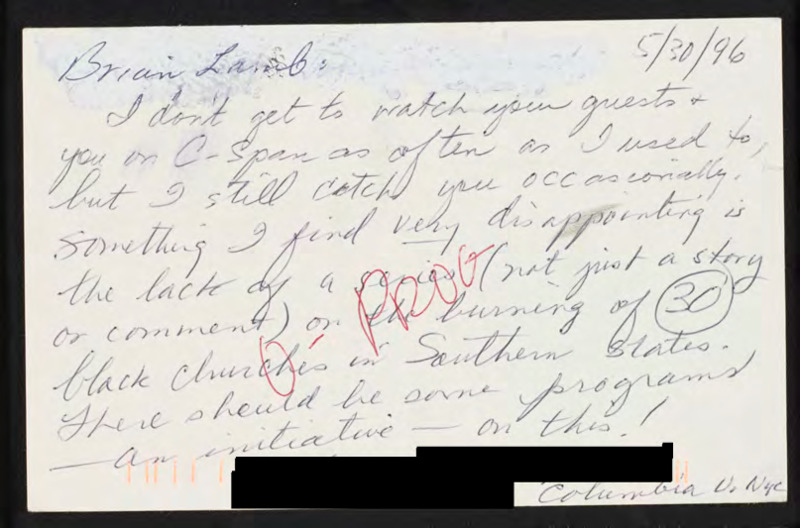 5/30/96
Brian Lamb:
I don't get to watch your guests +
you on C-Span as often as I used to,
but I still catch you occasionally.
Something I find very disappointing is
the lack of a series (not just a story
or comment) on the burning of 30
black churches in Southern States.
There should be some programs
— an initiative — on this!
Columbia U. NYC
PROG